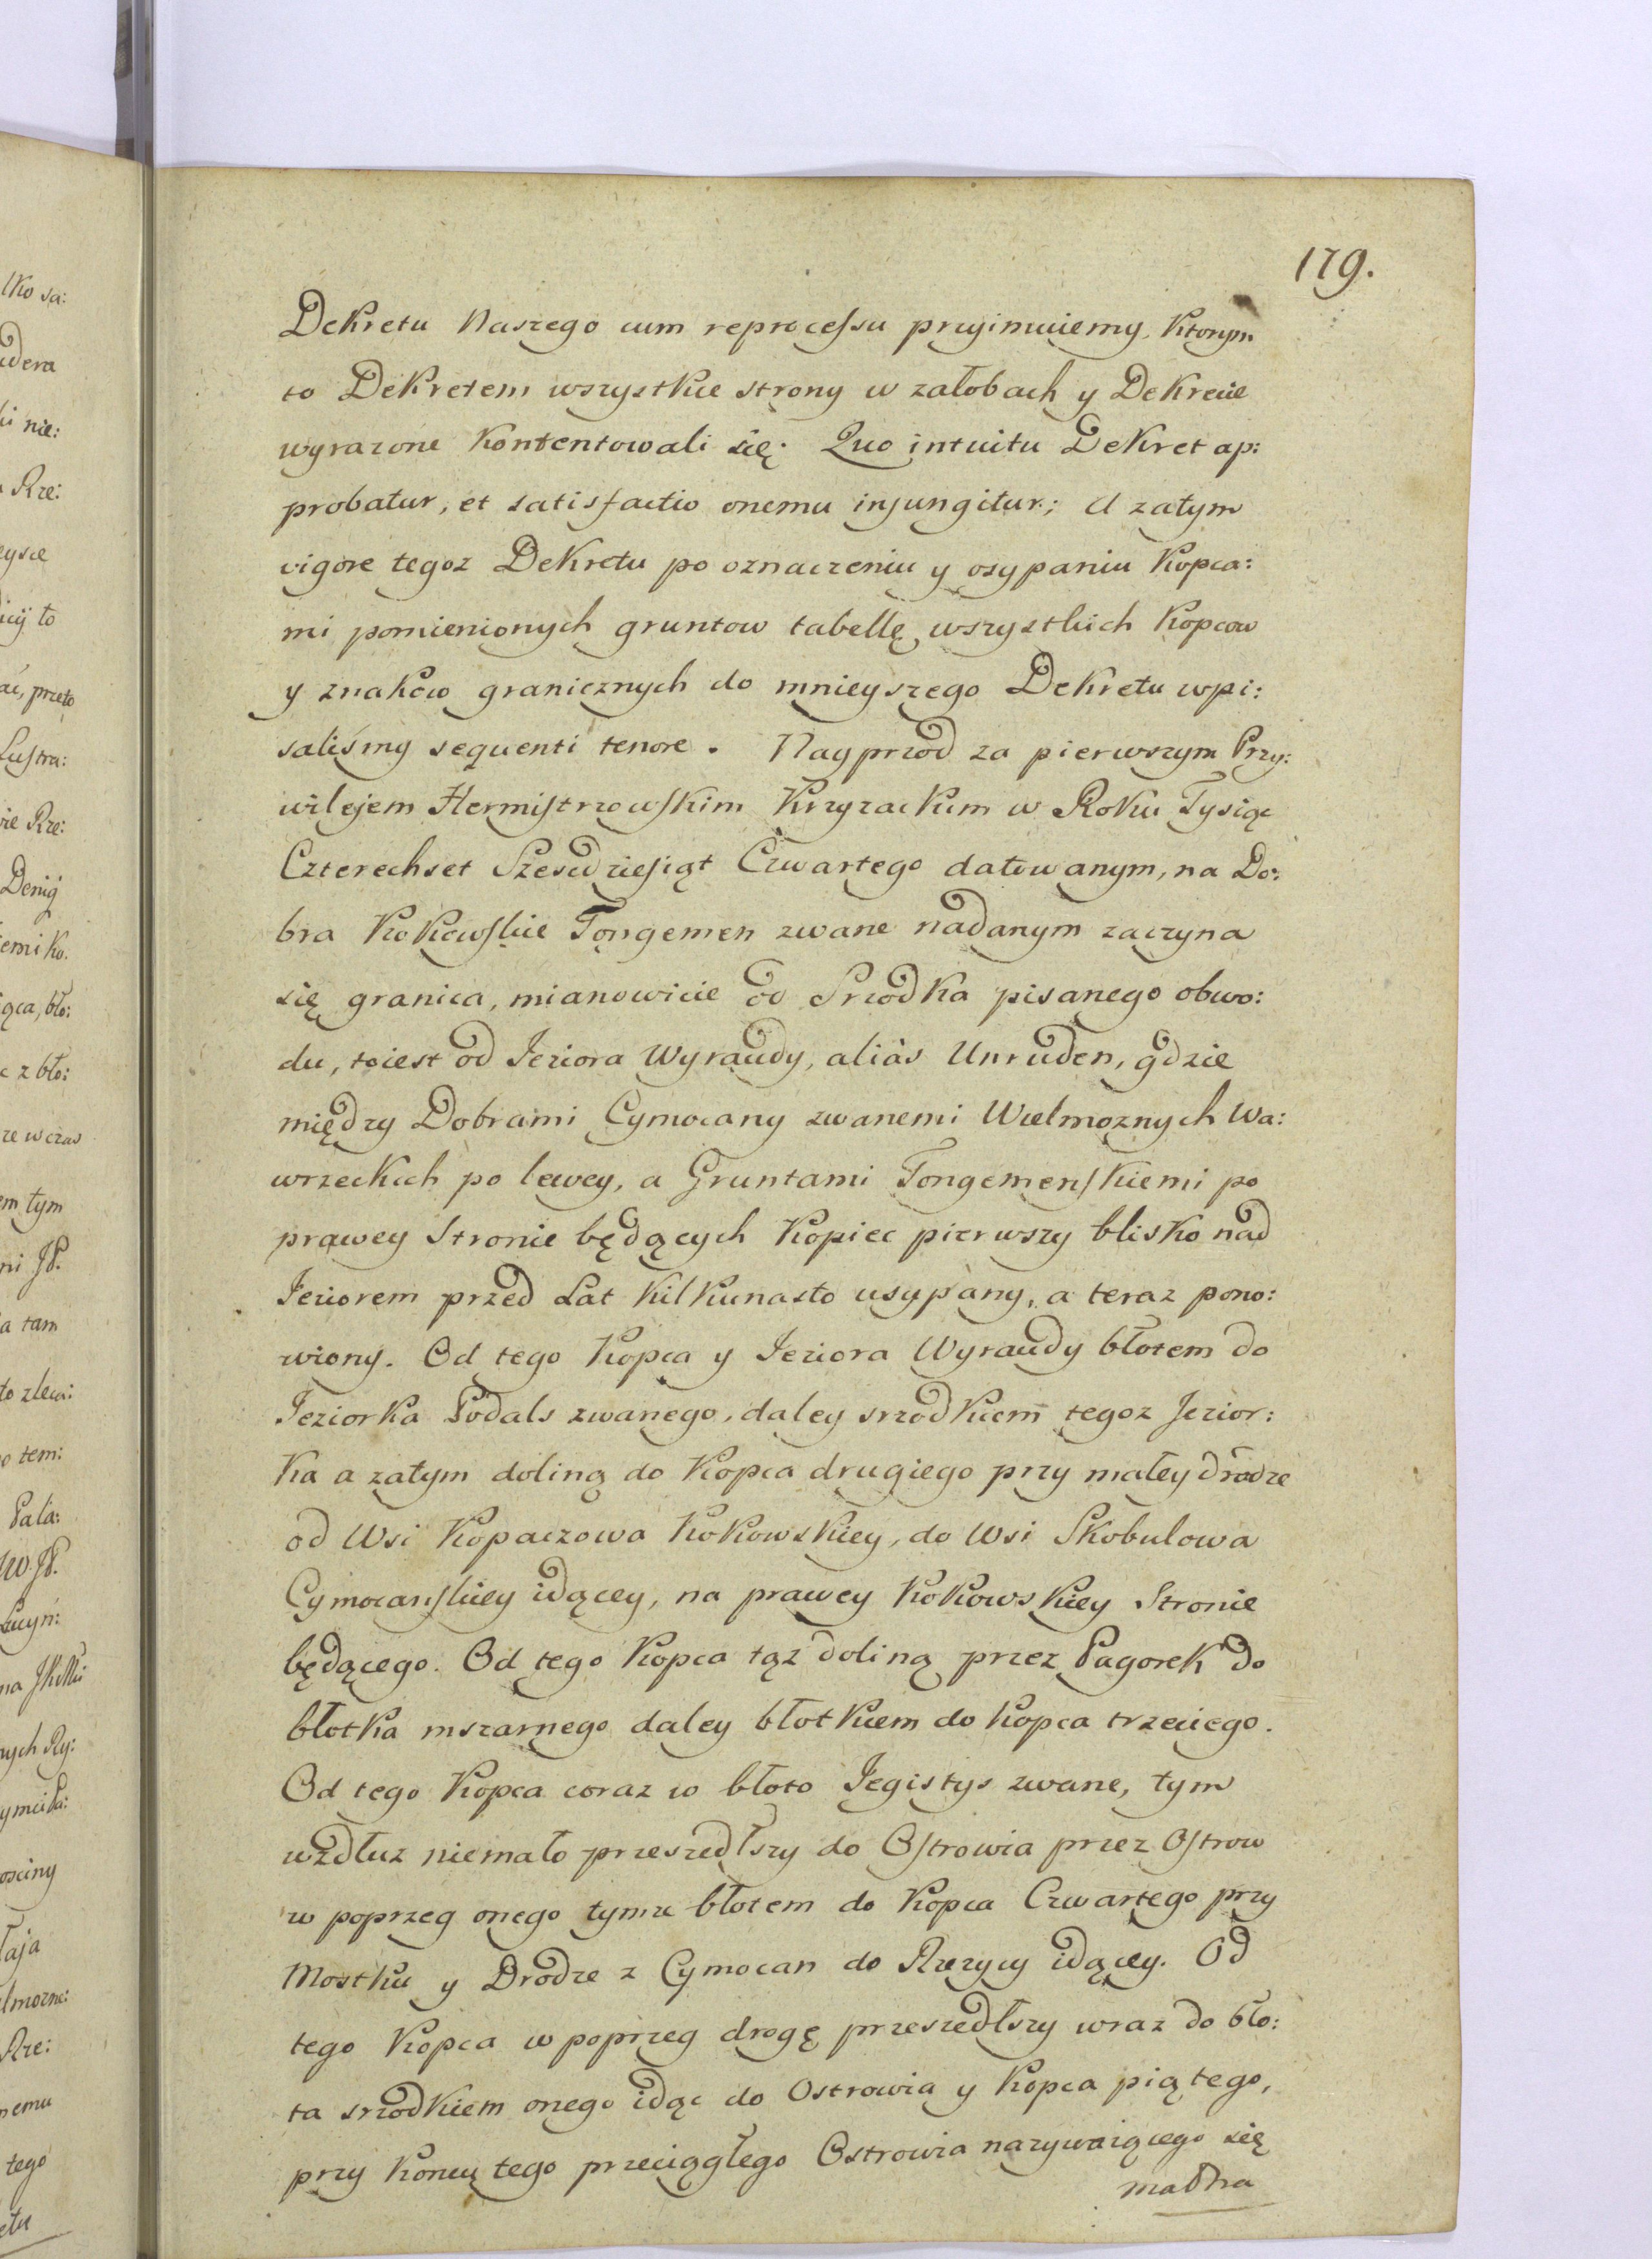 179.
Dekretu Naszego cum reprocessu przyimuiemy. Ktorym
to Dekretem wszystkie strony w załobach y Dekrecie
wyrazone kontentowali się. Quo intuitu Dekret ap:
probatur, et satisfactio onemu injungitur; A zatym
vigore tegoz Dekretu po oznaczeniu y osypaniu Kopca:
mi pomienionych gruntow tabellę wszystkich Kopcow
y znakow granicznych do mnieyszego Dekretu wpi:
saliśmy sequenti tenore. Nayprzod za pierwszym Przy:
wilejem Hermistrzowskim Krzyzackim w Roku Tysiąc
Czterechset Szescdziesiąt Czwartego datowanym, na Do:
bra Kokowskie Tongemen zwane nadanym zaczyna
się granica, mianowicie od Srzodka pisanego obwo:
du, toiest od Jeziora Wyraudy, alias Unruden, gdzie
między Dobrami Cymocany zwanemi Wielmoznych Wa:
wrzeckich po lewey, a Gruntami Tongemenskiemi po
prawey Stronie będących Kopiec pierwszy blisko nad
Jeziorem przed Lat kilkunasto usypany, a teraz pono:
wiony. Od tego Kopca y Jeziora Wyraudy błotem do
Jeziorka Podals zwanego, daley srzodkiem tegoz Jezior:
ka a zatym doliną do Kopca drugiego przy małey drodze
od Wsi Kopaczowa Kokowskiey, do Wsi Skobulowa
Cymocanskiey idącey, na prawey Kokowskiey Stronie
będącego. Od tego Kopca tąz doliną przez Pagorek do
błotka mszarnego daley błotkiem do Kopca trzeciego.
Od tego Kopca coraz w błoto Jegistys zwane, tym
wzdłuz niemało przeszedłszy do Ostrowia przez Ostrow
w poprzeg onego tymze błotem do Kopca Czwartego przy
Mostku y Drodze z Cymocan do Rzezycy idącey. Od
tego Kopca w poprzeg drogę przeszedłszy wraz do bło:
ta srzodkiem onego idąc do Ostrowia y Kopca piątego,
przy koncu tego przeciągłego Ostrowia nazywaiącego się
madha